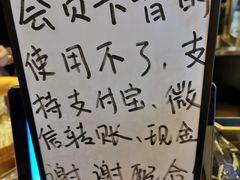 会员卡暂时
使用不了，支
持支付宝、微
信转账、现金
谢谢配合